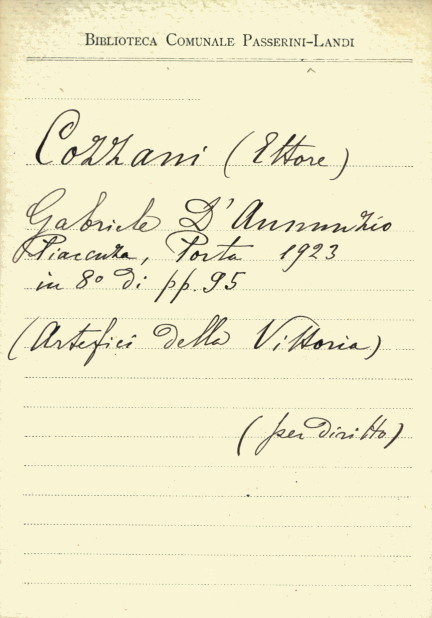 BIBLIOTECA COMUNALE PASSERINI-LANDI
Cozzani (Ettore)
Gabriele D'Annunzio
Piacenza, Porta 1923
in 8° di pp. 95
(Artefici della Vittoria)
(per diritto)